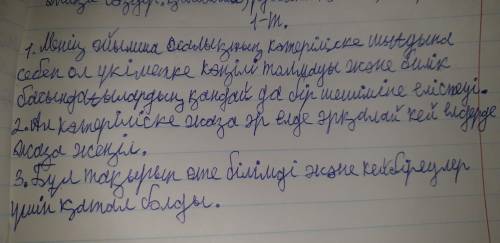 1-т.
1. Менің ойымша халықтың көтеріліске шығуына
себеп ол үкіметке көңілі толмауы және билік
басындағылардың қандай да бір шешіміне келіспеуі.
2. Ал көтеріліске жаза әр елде әрқалай кей елдерде
жаза жеңіл.
3. Бұл тақырып өте білімді және кейбіреулер
үшін қатал болды.